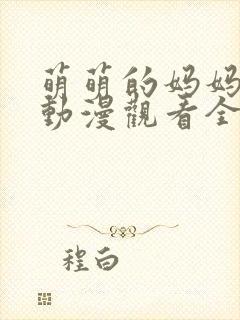 萌萌的妈妈
動漫觀看全
程白